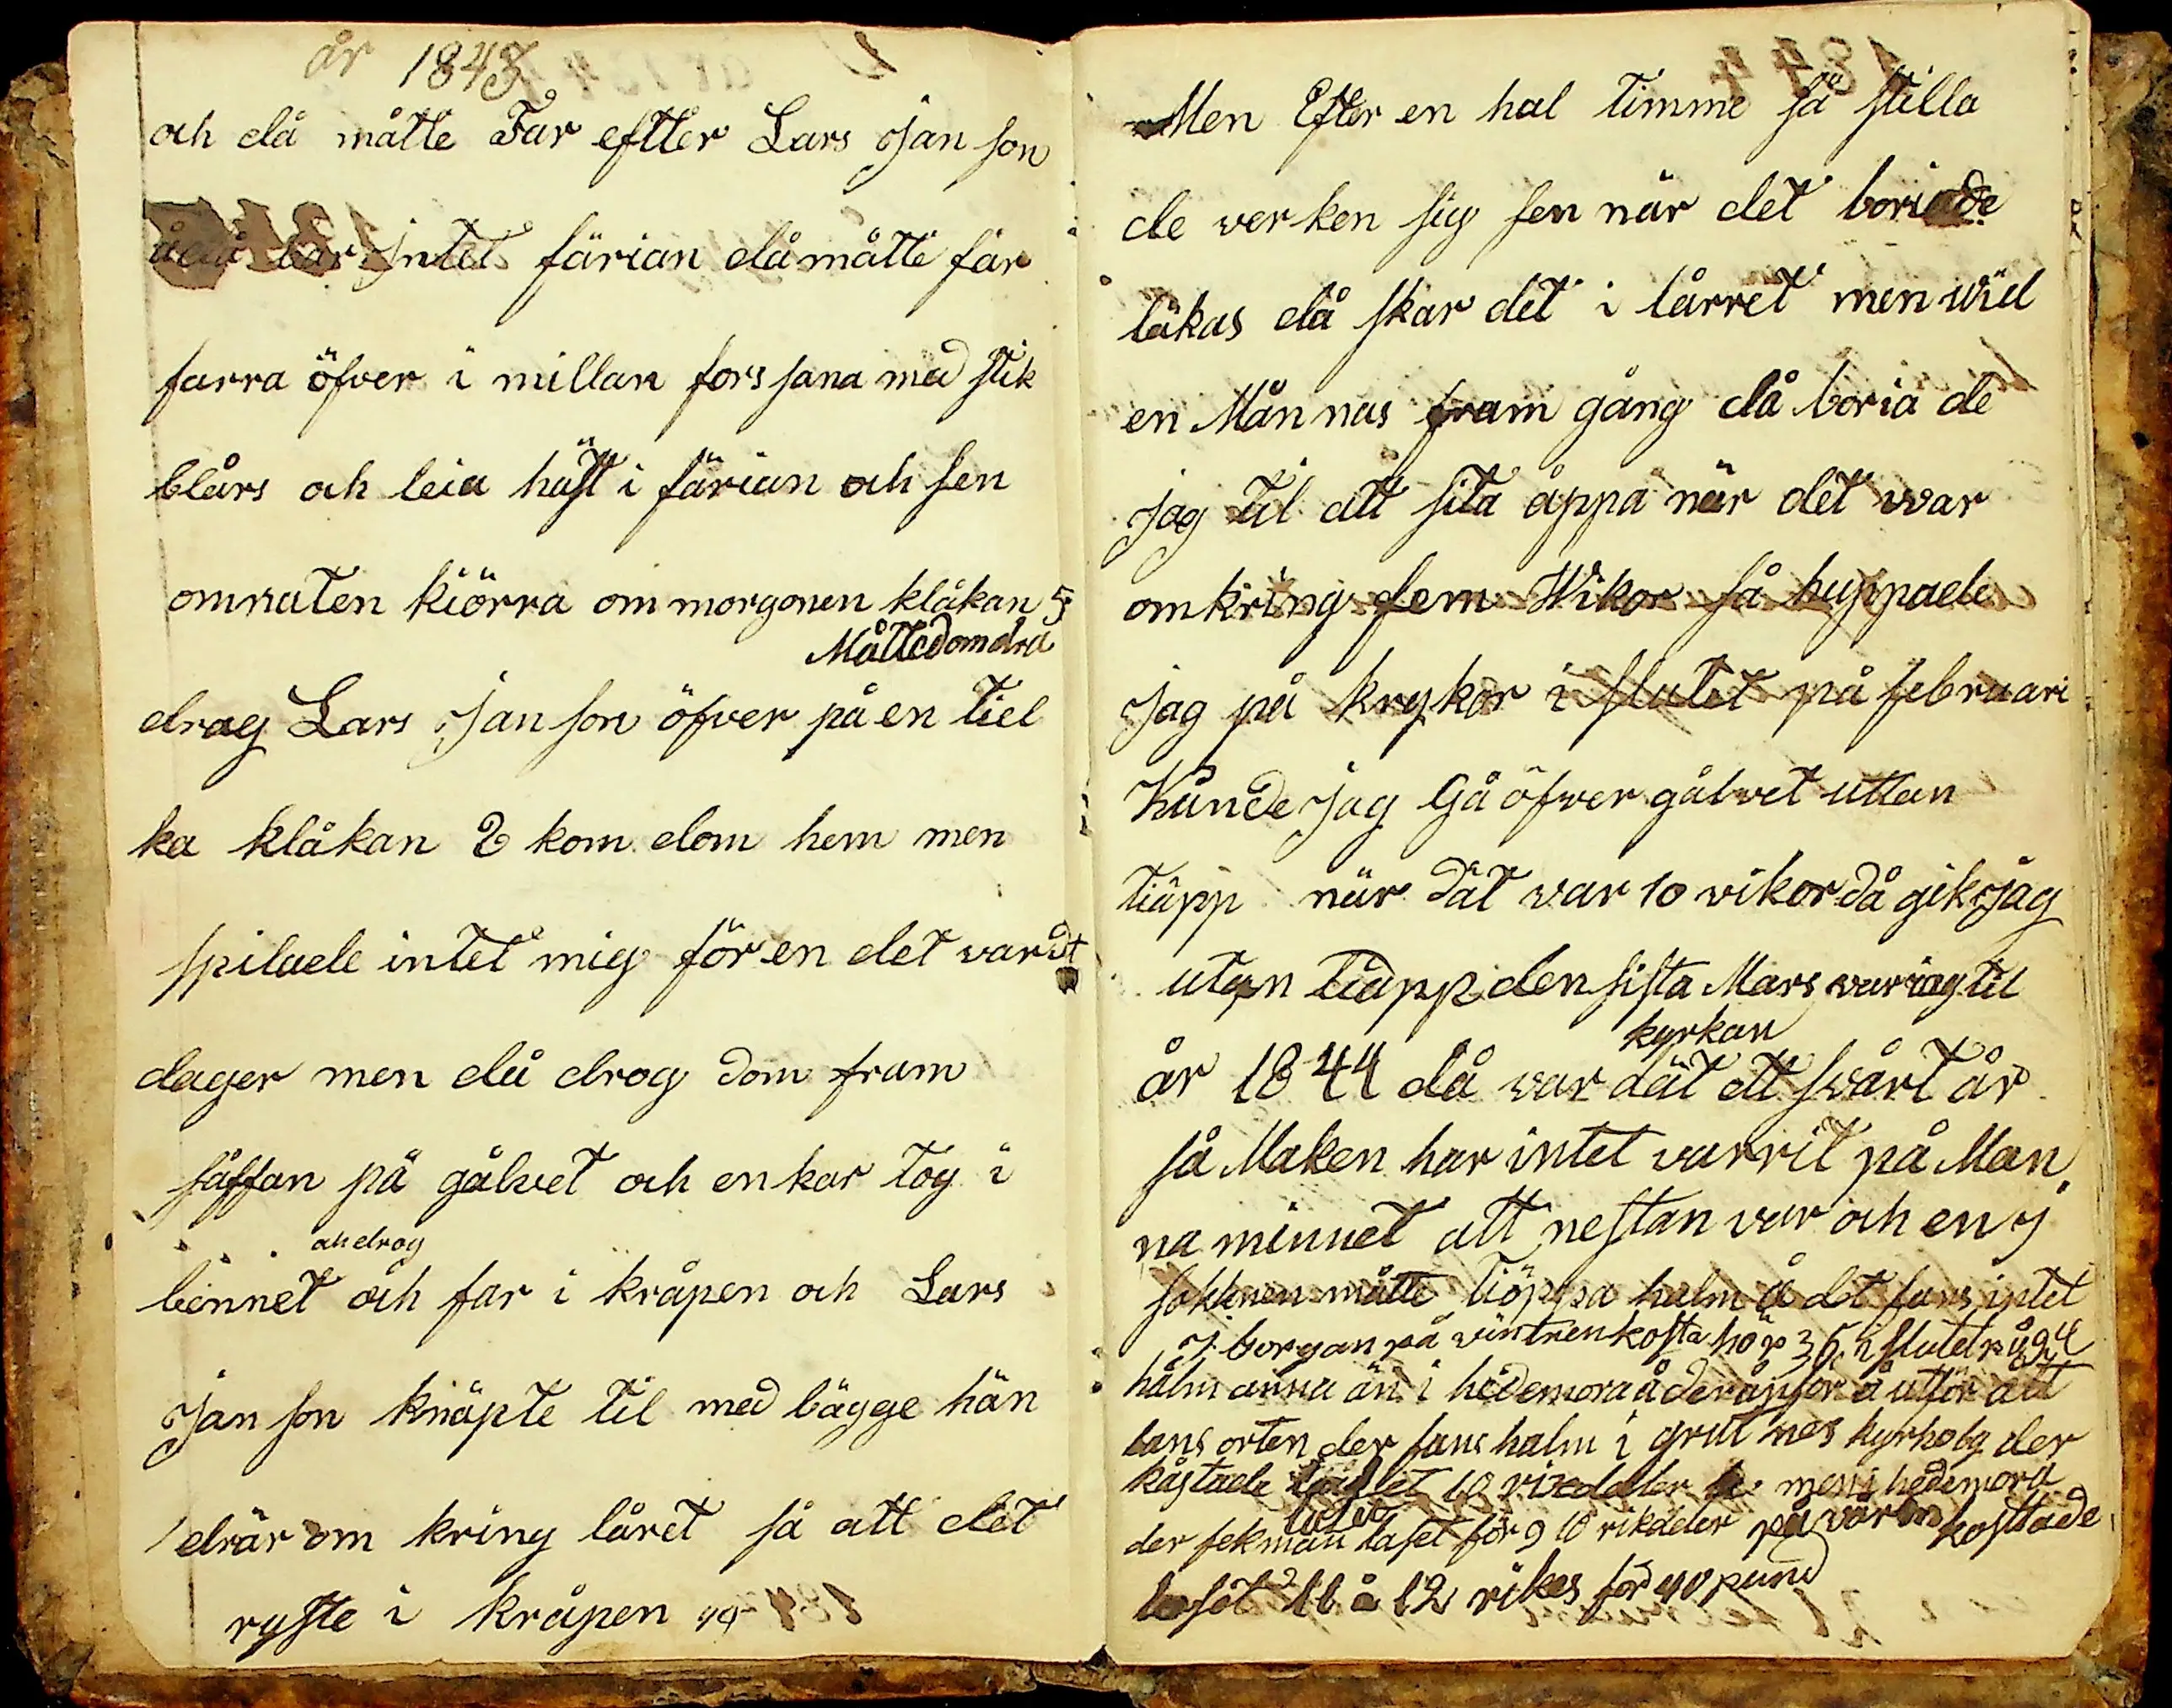 år 1843
och då måtte Far eftter Lars Jan son
bar Intet färian då måtte far
farra öfver i millan fors sana med stik
blårs och leia häst i färian och sen
omnaten kiörra om morgonen klåkan 5
Måttedomdra
drag Lars Jan son öfver på en tiel
ka klåkan 2 kom dom hem men
spilade intet mig för en det vardt
dager men då drog dom fram
såffan på gålvet och en kar tog i
ah drog
bennet och far i kråpen och Lars
Jan son knäpte til med bägge hän
drär om kring låret så att det
ryste i kråpen
Men Efter en hal timme så stilla
de verken sig sen när det boriade
läkas då skar det i lårret men wid
en Månnas fram gång då boria de
jag til att sita åppa når det war
omkring fem Wikor så huppade
jag på krykor i slutet på februari
Kunde jag Gå öfwer gålvet uttan
tiäpp når dät war 10 vikor då gik jag
utan tiäpp den sista Mars var iag til
kyrkan
år 1844 då war dät ett svårt år
så Maken har intet varrit på Man
na minnet att nestan var och en j
sokknen måtte tiöppa halm å det fans intet
J borgan på vintren kosta hö p 36 i slutet på 24
hålm anna än i hedemora å deränför å utför att
lans orten der fans halm i grut nes kyrhobg der
kåstade laset 10 rixdaler men i hedemora
laset
der fek man laset för 9 10 rikdaler på vårn kosttade
lasot 11 å 12 rikes för 40 pund